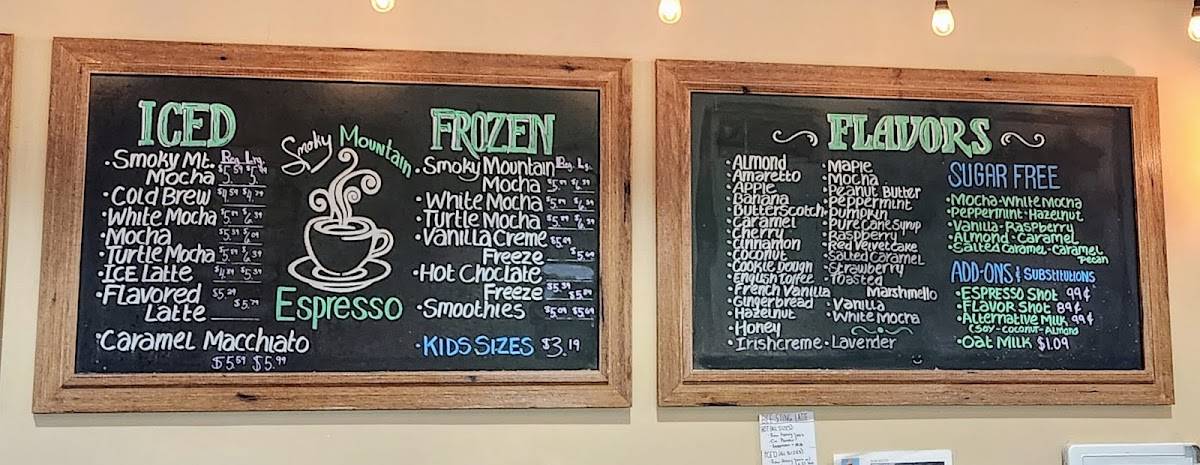 ICED
·Smoky Mt. Reg. Lrg.
Mocha
·Cold Brew
·White Mocha
·Mocha
·Turtle Mocha
·ICE Latte
·Flavored
Latte
·Caramel Macchiato
$5.59 $5.99
Smoky Mountain
Espresso
FROZEN
·Smoky Mountain Reg. Lg.
Mocha
·White Mocha
·Turtle Mocha
·Vanilla Creme
Freeze
·Hot Choclate
Freeze
·Smoothies $5.09 $5.69
·KIDS SIZES $3.19
FLAVORS
·Almond
·Amaretto
·Apple
·Banana
·Butterscotch
·Caramel
·Cherry
·Cinnamon
·Coconut
·Cookie Dough
·English Toffee
·French Vanilla
·Gingerbread
·Hazelnut
·Honey
·Irishcreme
·Maple
·Mocha
·Peanut Butter
·Peppermint
·Pumpkin
·Pure Cane Syrup
·Raspberry
·Red Velvet Cake
·Salted Caramel
·Strawberry
·Toasted
Marshmello
·Vanilla
·White Mocha
·Lavender
SUGAR FREE
·Mocha·White Mocha
·Peppermint·Hazelnut
·Vanilla·Raspberry
·Almond·Caramel
·Salted Caramel·Caramel
Pecan
ADD-ONS & SUBSTITUTIONS
·ESPRESSO Shot 99¢
·Flavor Shot 89¢
·Alternative Milk 99¢
(Soy-Coconut-Almond
·Oat Milk $1.09